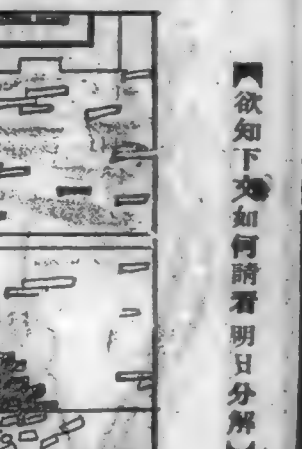 【欲知下文如何請看明日分解】